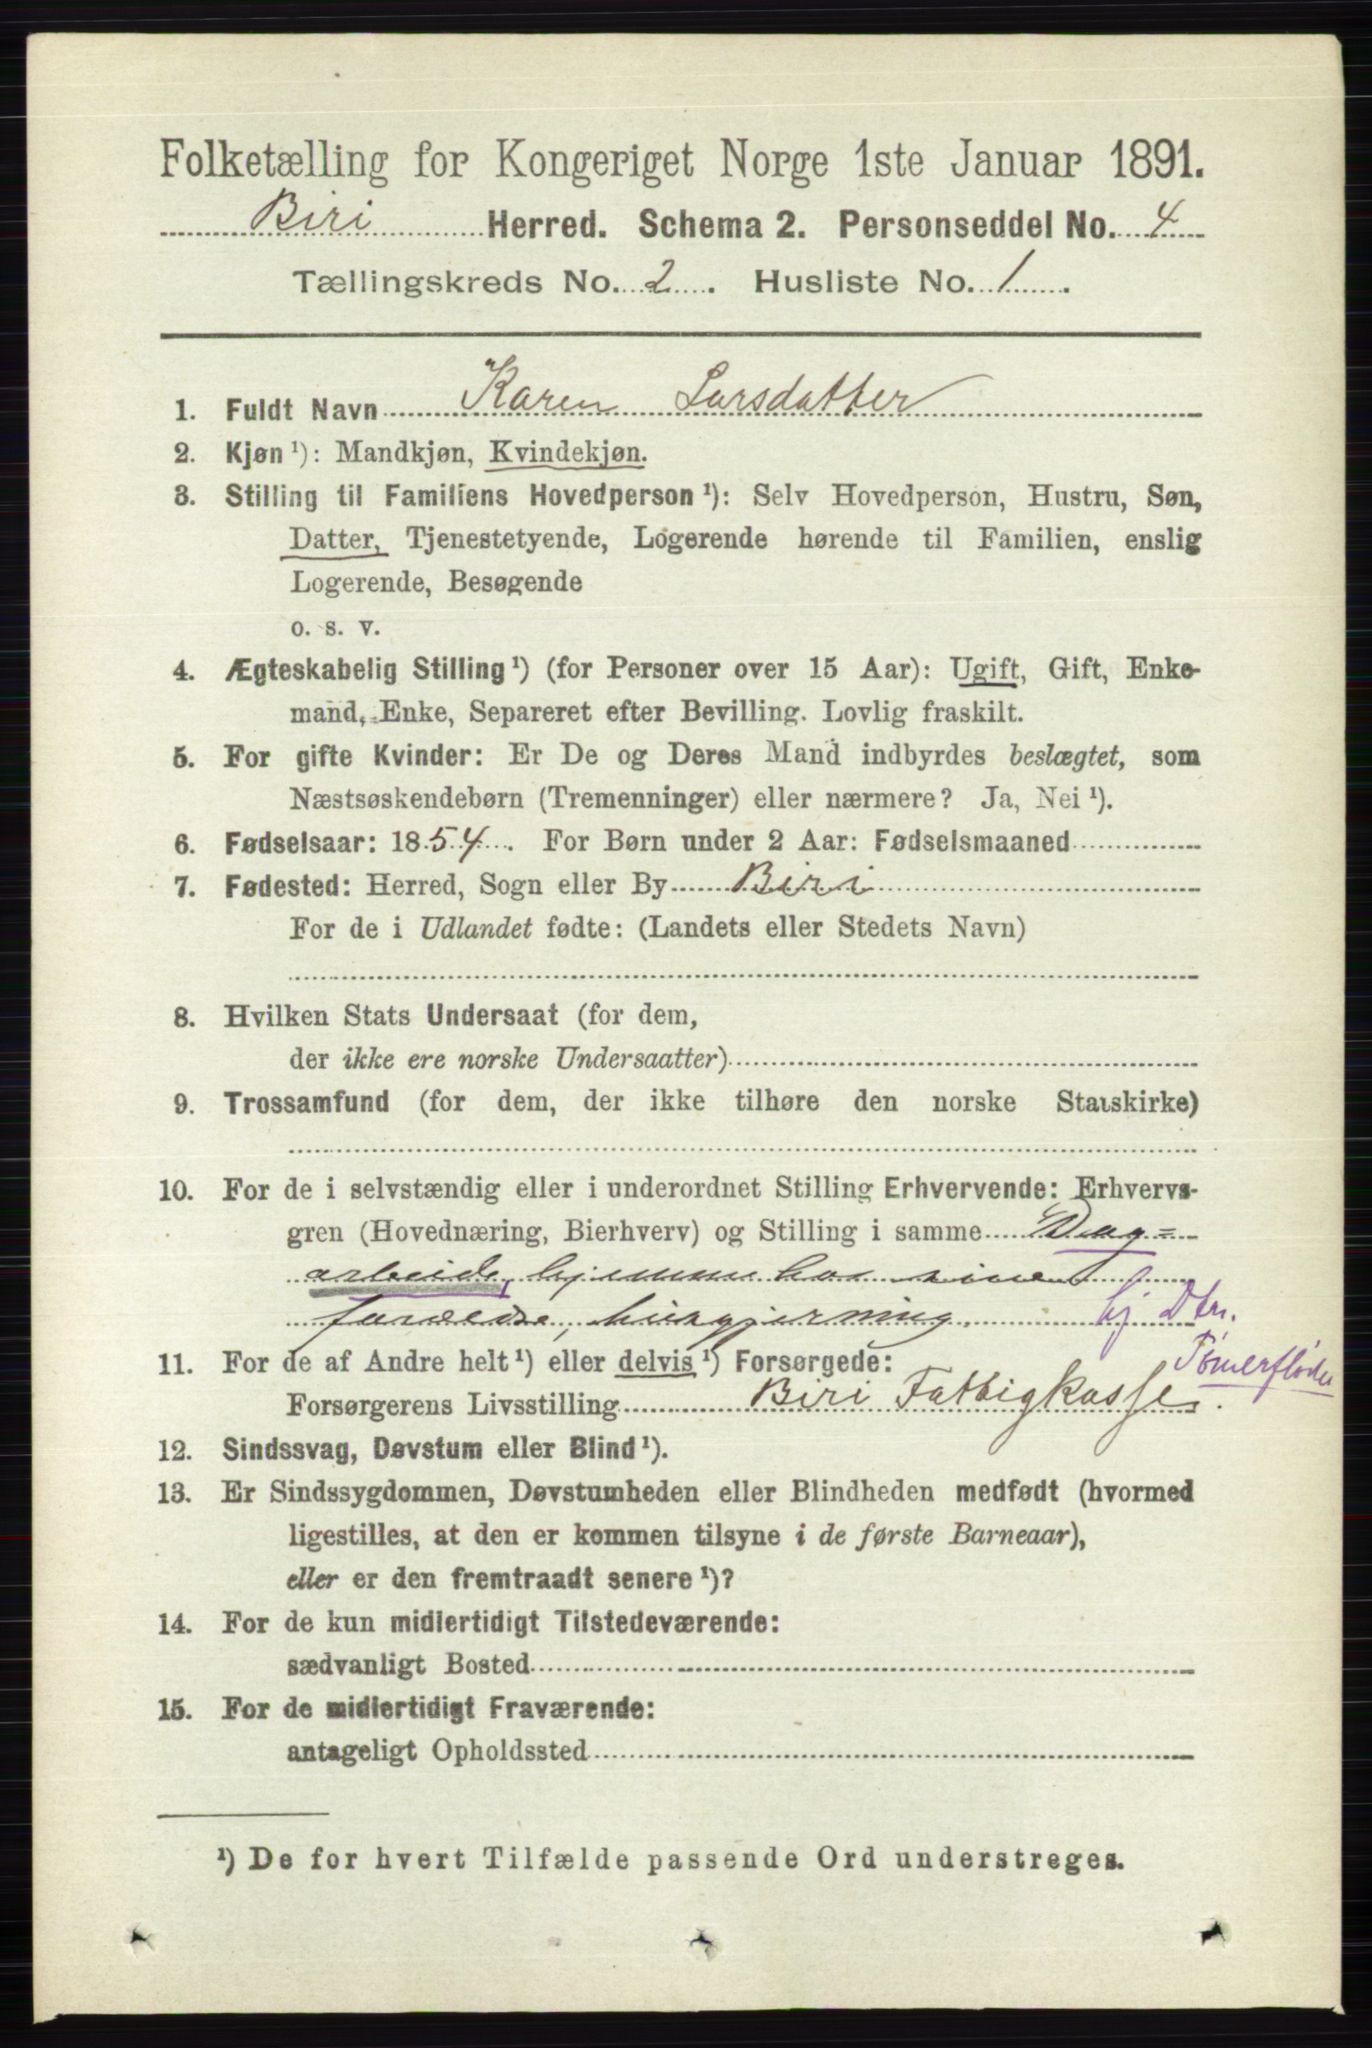 Folketælling for Kongeriget Norge 1ste Januar 1891.
Biri Herred. Schema 2. Personseddel No. 4
Tællingskreds No. 2. Husliste No. 1.
1. Fuldt Navn Karen Larsdatter
2. Kjøn¹): Mandkjøn, Kvindekjøn.
3. Stilling til Familiens Hovedperson¹): Selv Hovedperson, Hustru, Søn,
Datter, Tjenestetyende, Logerende hørende til Familien, enslig
Logerende, Besøgende
o. s. v.
4. Ægteskabelig Stilling¹) (for Personer over 15 Aar): Ugift, Gift, Enke-
mand, Enke, Separeret efter Bevilling. Lovlig fraskilt.
5. For gifte Kvinder: Er De og Deres Mand indbyrdes beslægtet, som
Næstsøskendebørn (Tremenninger) eller nærmere? Ja, Nei¹).
6. Fødselsaar: 1854. For Børn under 2 Aar: Fødselsmaaned
7. Fødested: Herred, Sogn eller By Biri
For de i Udlandet fødte: (Landets eller Stedets Navn)
8. Hvilken Stats Undersaat (for dem,
der ikke ere norske Undersaatter)
9. Trossamfund (for dem, der ikke tilhøre den norske Statskirke)
10. For de i selvstændig eller i underordnet Stilling Erhvervende: Erhvervs-
gren (Hovednæring, Bierhverv) og Stilling i samme Dag=
arbeide, hjemme hos sine
forældre, husgjerning. hj Dtr.
Tømerfløder
11. For de af Andre helt¹) eller delvis¹) Forsørgede:
Forsørgerens Livsstilling Biri Fattigkasse.
12. Sindssvag, Døvstum eller Blind¹).
13. Er Sindssygdommen, Døvstumheden eller Blindheden medfødt (hvormed
ligestilles, at den er kommen tilsyne i de første Barneaar),
eller er den fremtraadt senere¹)?
14. For de kun midlertidigt Tilstedeværende:
sædvanligt Bosted
15. For de midlertidigt Fraværende:
antageligt Opholdssted
¹) De for hvert Tilfælde passende Ord understreges.